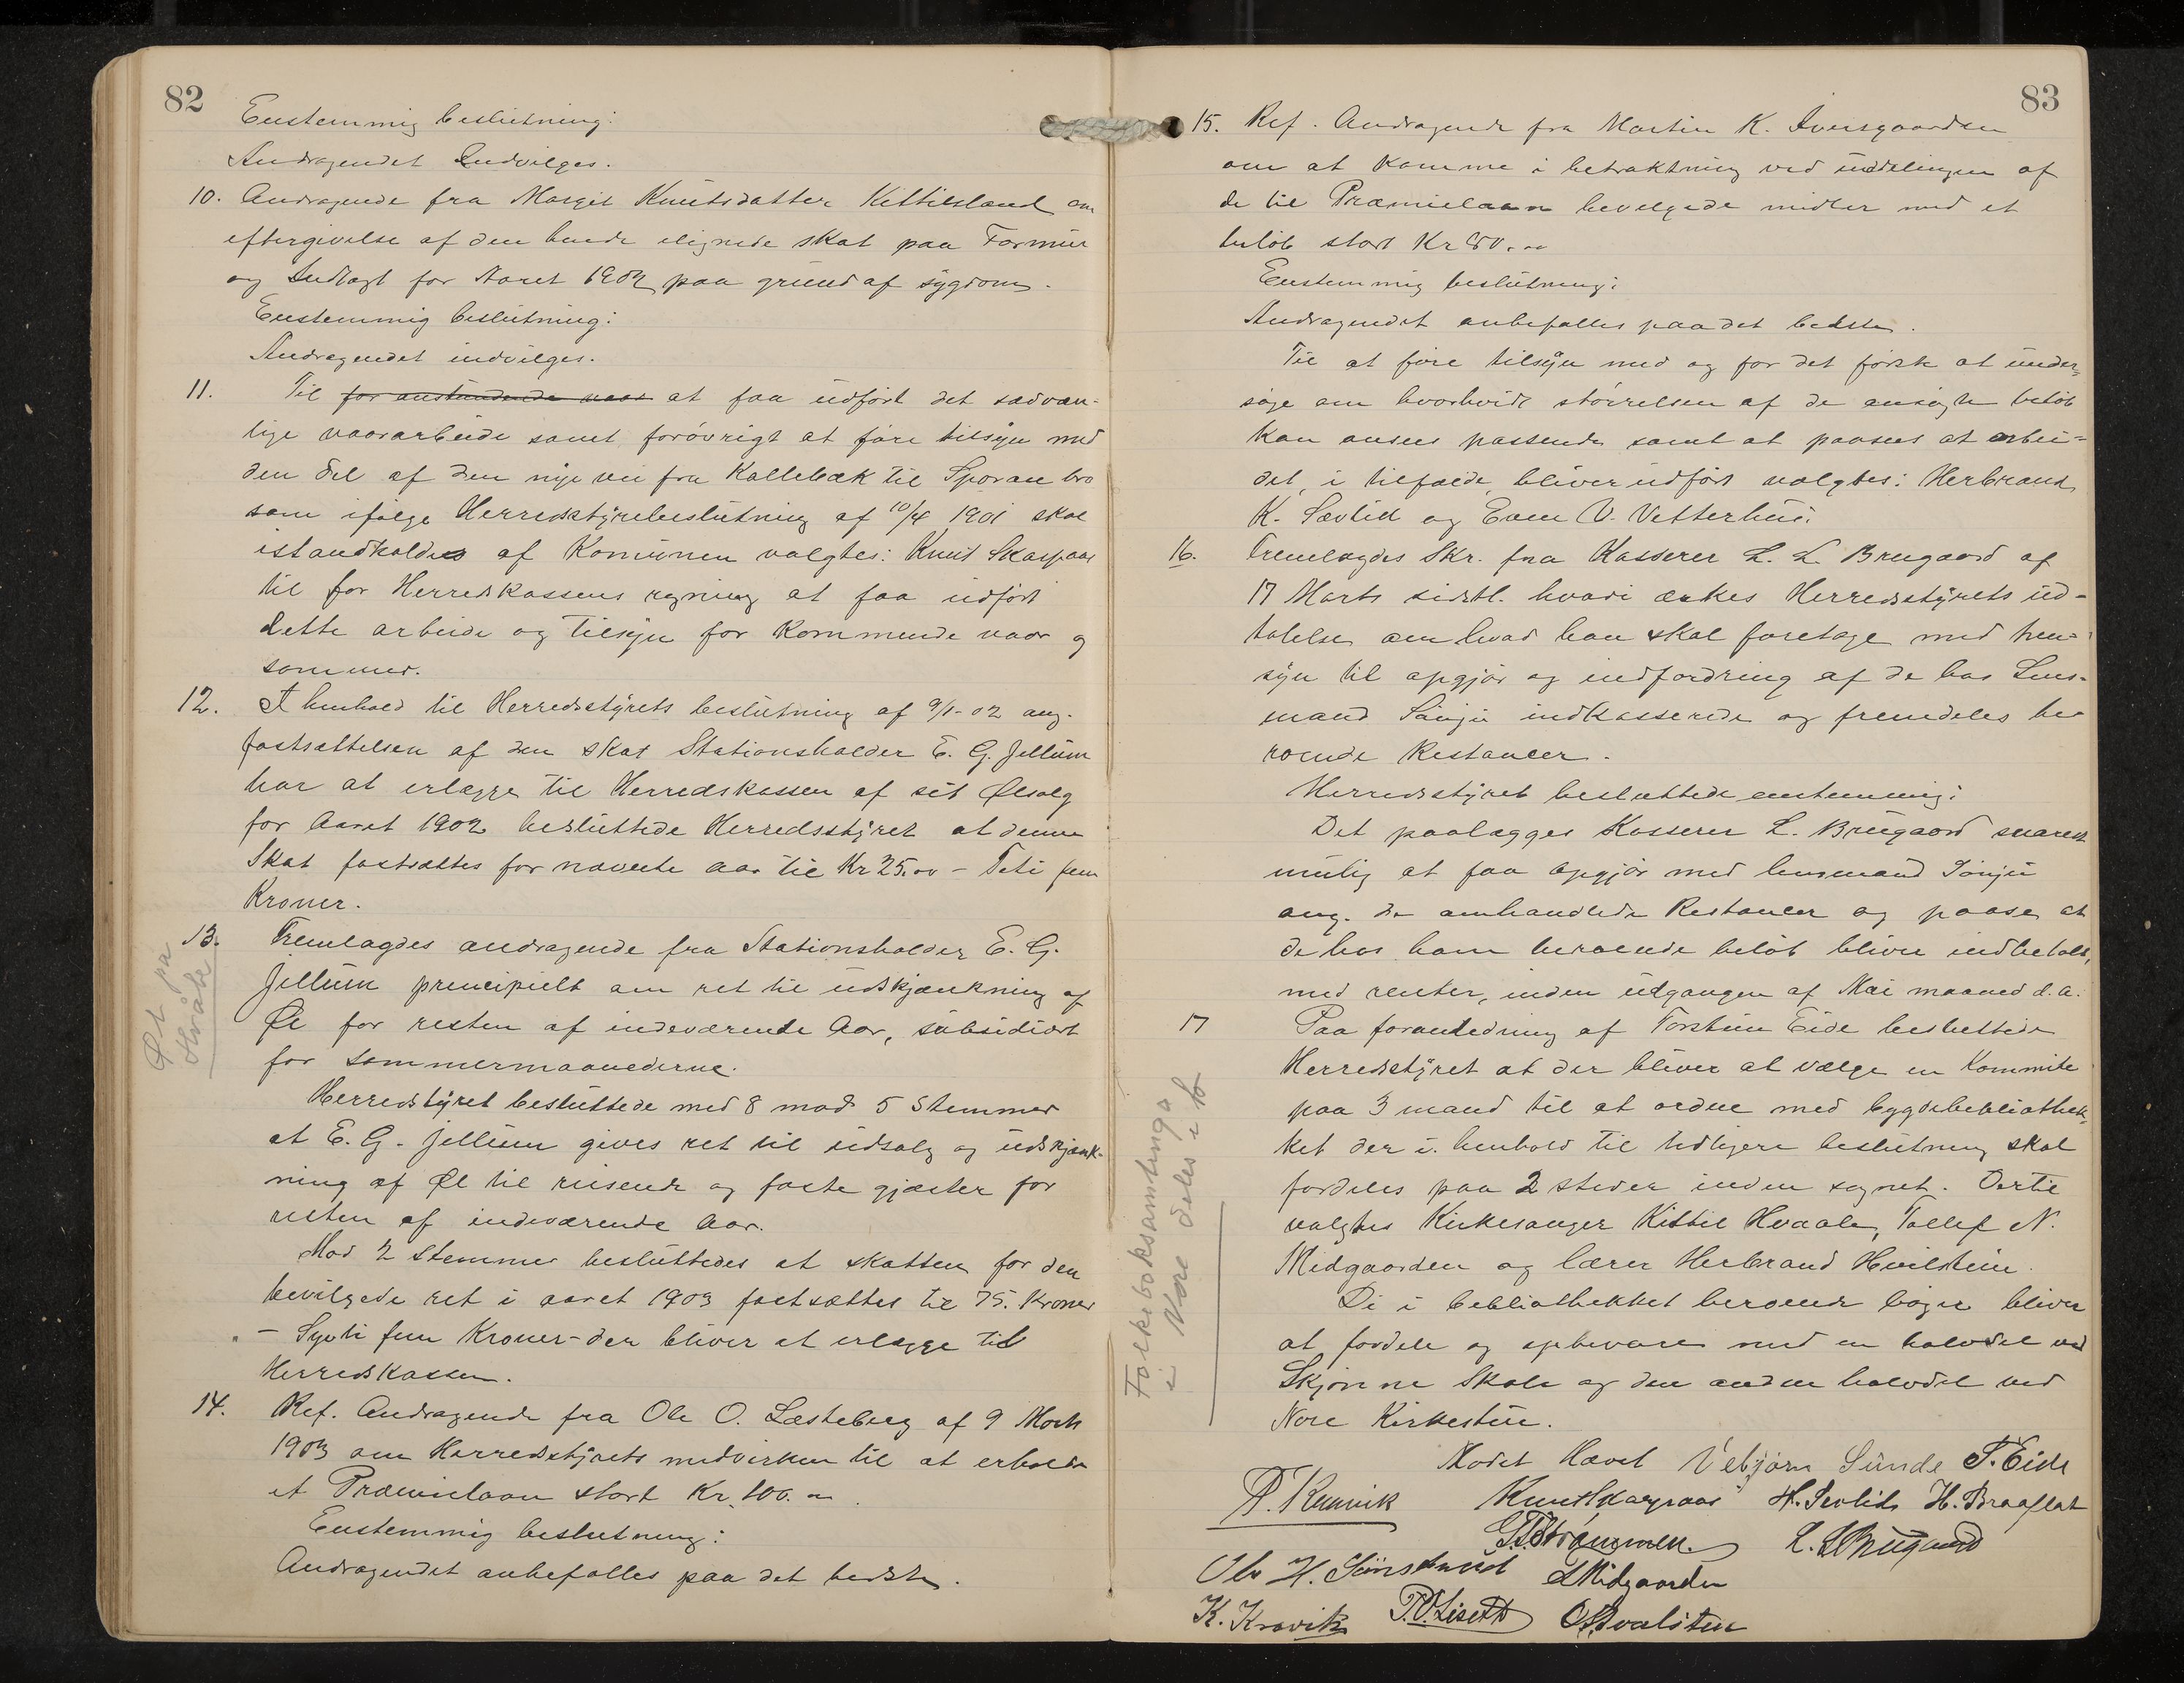 82
Enstemmig beslutning:
Andragendet Indvilges.
10. Andragende fra Margit Knutsdatter Kittilsland om
eftergivelse af den hende ilignede skat paa Formue
og Indtægt for Aaret 1902 paa grund af sygdom.
Enstemmig beslutning:
Andragendet indvilges.
11. Til for anstundende vaar at faa udført det sædvan-
lige vaararbeide samt forøvrigt at føre tilsyn med
den del af den nye vei fra Kallebæk til Sporan bro
som ifølge Herredsstyrebeslutning af 10/4 1901 skal
istandholdes af Komunen valgtes: Knut Skarpaas
til for Herredskassens regning at faa udført
dette arbeide og tilsyn for kommende vaar og
sommer.
12. I henhold til Herredsstyrets beslutning af 9/1-02 ang.
fastsættelsen af den skat Stationsholder E. G. Jellum
har at erlægge til Herredskassen af sit Ølsalg
for Aaret 1902 besluttede Herredsstyret at denne
Skat fastsættes for nævnte aar til Kr 25.00 – Teti fem
Kroner.
13. Fremlagdes andragende fra Stationsholder E. G.
Jellum principielt om ret til udskjænkning af
Øl for resten af indeværende Aar, subsidiært
for sommermaanederne.
Herredsstyret besluttede med 8 mod 5 Stemmer
at E. G. Jellum gives ret til udsalg og udskjænk-
ning af Øl til reisende og faste gjæster for
resten af indeværende Aar.
Mod 2 Stemmer besluttedes at skatten for den
bevilgede ret i aaret 1903 fastsættes til 75. Kroner
– Syvti fem Kroner – der bliver at erlægge til
Herredskassen.
14. Ref. Andragende fra Ole O. Læsteberg af 9 Marts
1903 om Herredsstyrets medvirken til at erholde
et Præmielaan stort Kr. 100.00.
Enstemmig beslutning:
Andragendet anbefalles paa det bedste.
Øl på
Hvåle
83
15. Ref. Andragende fra Martin K. Iversgaarden
om at komme i betraktning ved uddelingen af
de til Præmielaan bevilgede midler med et
beløb stort Kr 80.00
Enstemmig beslutning:
Andragendet anbefalles paa det bedste.
Til at føre tilsyn med og for det første at under-
søge om hvorhvidt størrelsen af de ansøgte beløb
kan ansees passende samt at paasees at arbei-
det, i tilfælde, bliver udført valgtes: Herbrand
K. Sevlid og Even V. Vetterhus.
16. Fremlagdes Skr. fra Kasserer L. L. Brugaard af
17 Marts sidstl. hvori ænkes Herredsstyrets ud-
talelse om hvad han skal foretage med hen-
syn til opgjør og indfordring af de hos Lens-
mand Sønju indkasserede og fremdeles be-
roende Restancer.
Herredsstyret besluttede enstemmig:
Det paalægges Kasserer L. Brugaard snarest
mulig at faa opgjør med lensmand Sønju
ang. de omhandlede Restancer og paase at
de hos ham beroende beløb bliver indbetalt,
med renter, inden udgangen af Mai maaned d.a.
17 Paa foranledning af Torstein Eide besluttede
Herredsstyret at der bliver at vælge en Kommite
paa 3 mand til at ordne med bygdebebliothek-
ket der i henhold til tidligere beslutning skal
fordeles paa 2 steder inden sognet. Dertil
valgtes Kirkesanger Kittil Hvaale, Tollef N.
Midgaarden og lærer Herbrand Hvilstein.
De i bebliothekket beroende bøger bliver
at fordele og opbevare med en halvdel ved
Skjønne Skole og den anden halvdel ved
Nore Kirkestue.
Folkeboksamlinga
i Nore deles i to
Mødet Hævet Vebjørn Sunde T. Eide
Knut Skarpaas H. Sevlid H. Braaflat
G. T. Strømmen. L. L. Brugaard
T. Midgaarden
K. Kravik T. O. Liseth